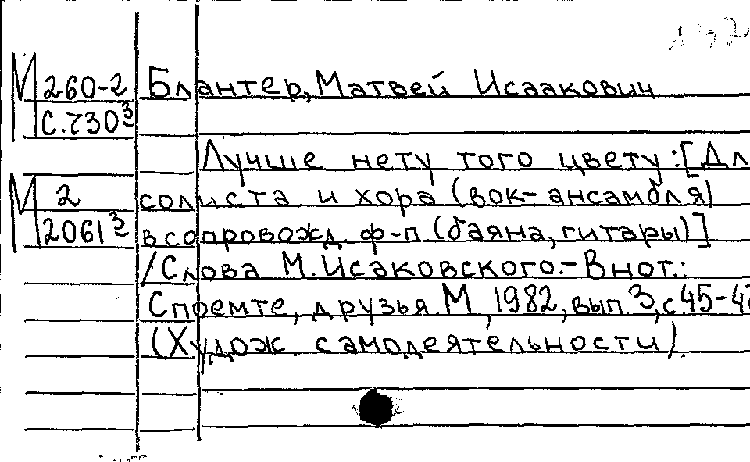 М 260-2
С.730³
Блантер, Матвей Исаакович
Лучше нету того цвету :[Дл
М 2
2061³
солиста и хора (вок-ансамбля)
в сопровожд. ф-п (баяна, гитары)]
/Слова М.Исаковского.-В нот.:
Споемте, друзья. М., 1982, вып.3, с 45-4
(Худож. самодеятельности).